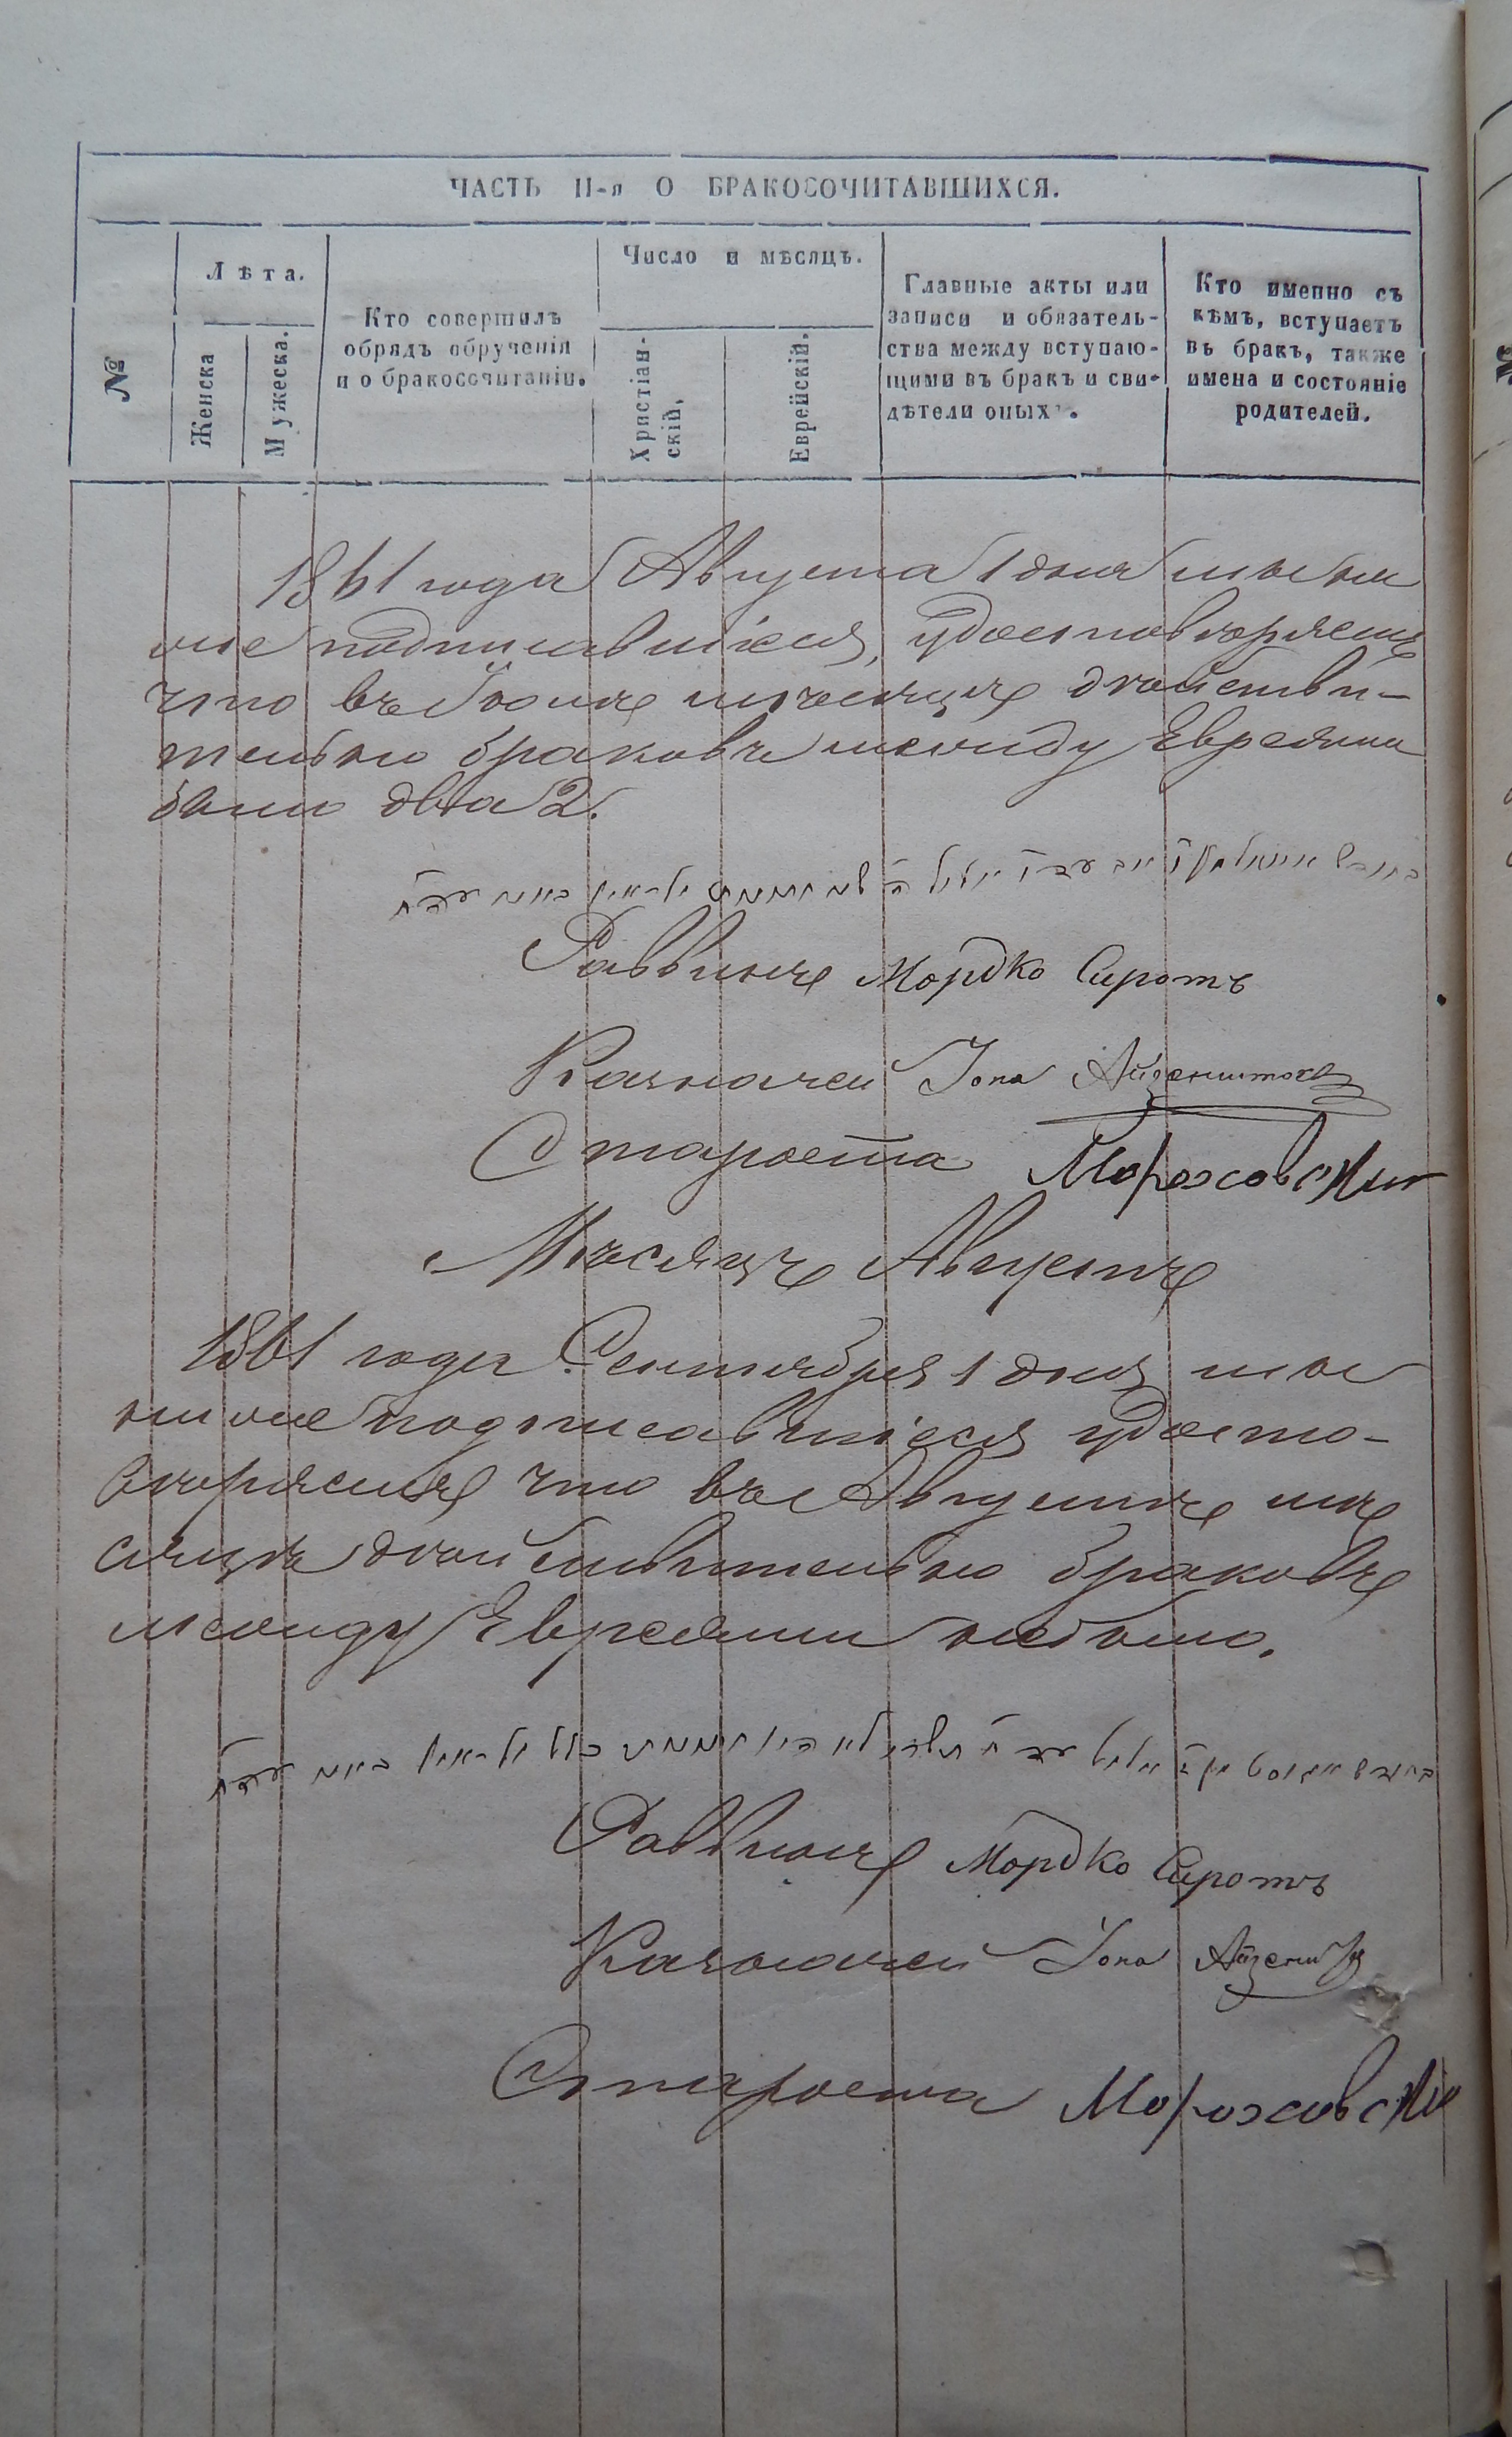 ЧАСТЬ II-я О БРАКОСОЧИТАВШИХСЯ.
№
Лѣта.
Женска
Мужеска.
Кто совершилъ
обрядъ обрученія
и о бракосочитаніи.
Число и мѣсяцъ.
Христіан-
скій,
Еврейскій,
Главные акты или
записи и обязатель-
ства между вступаю-
щими въ бракъ и сви-
дѣтели оныхъ.
Кто именно съ
кѣмъ, вступаетъ
въ бракъ, также
имена и состояніе
родителей.
1861 года Августа 1 дня мы ни
же подписавшіеся, удостовѣряемъ
что въ Іюлѣ мѣсяцѣ дѣйстви-
тельно браковъ между Евреями
было два 2.
Раввинъ Мордко Сиротъ
Казначей Іона Айзенштокъ
Староста Мороховскій
Мѣсяцъ Августъ
1861 года Сентября 1 дня мы
ниже подписавшіеся удосто-
вѣряемъ что въ Августѣ мѣ
сяцѣ дѣйствительно браковъ
между Евреями небыло.
Раввинъ Мордко Сиротъ
Казначей Іона
Староста Мороховскій